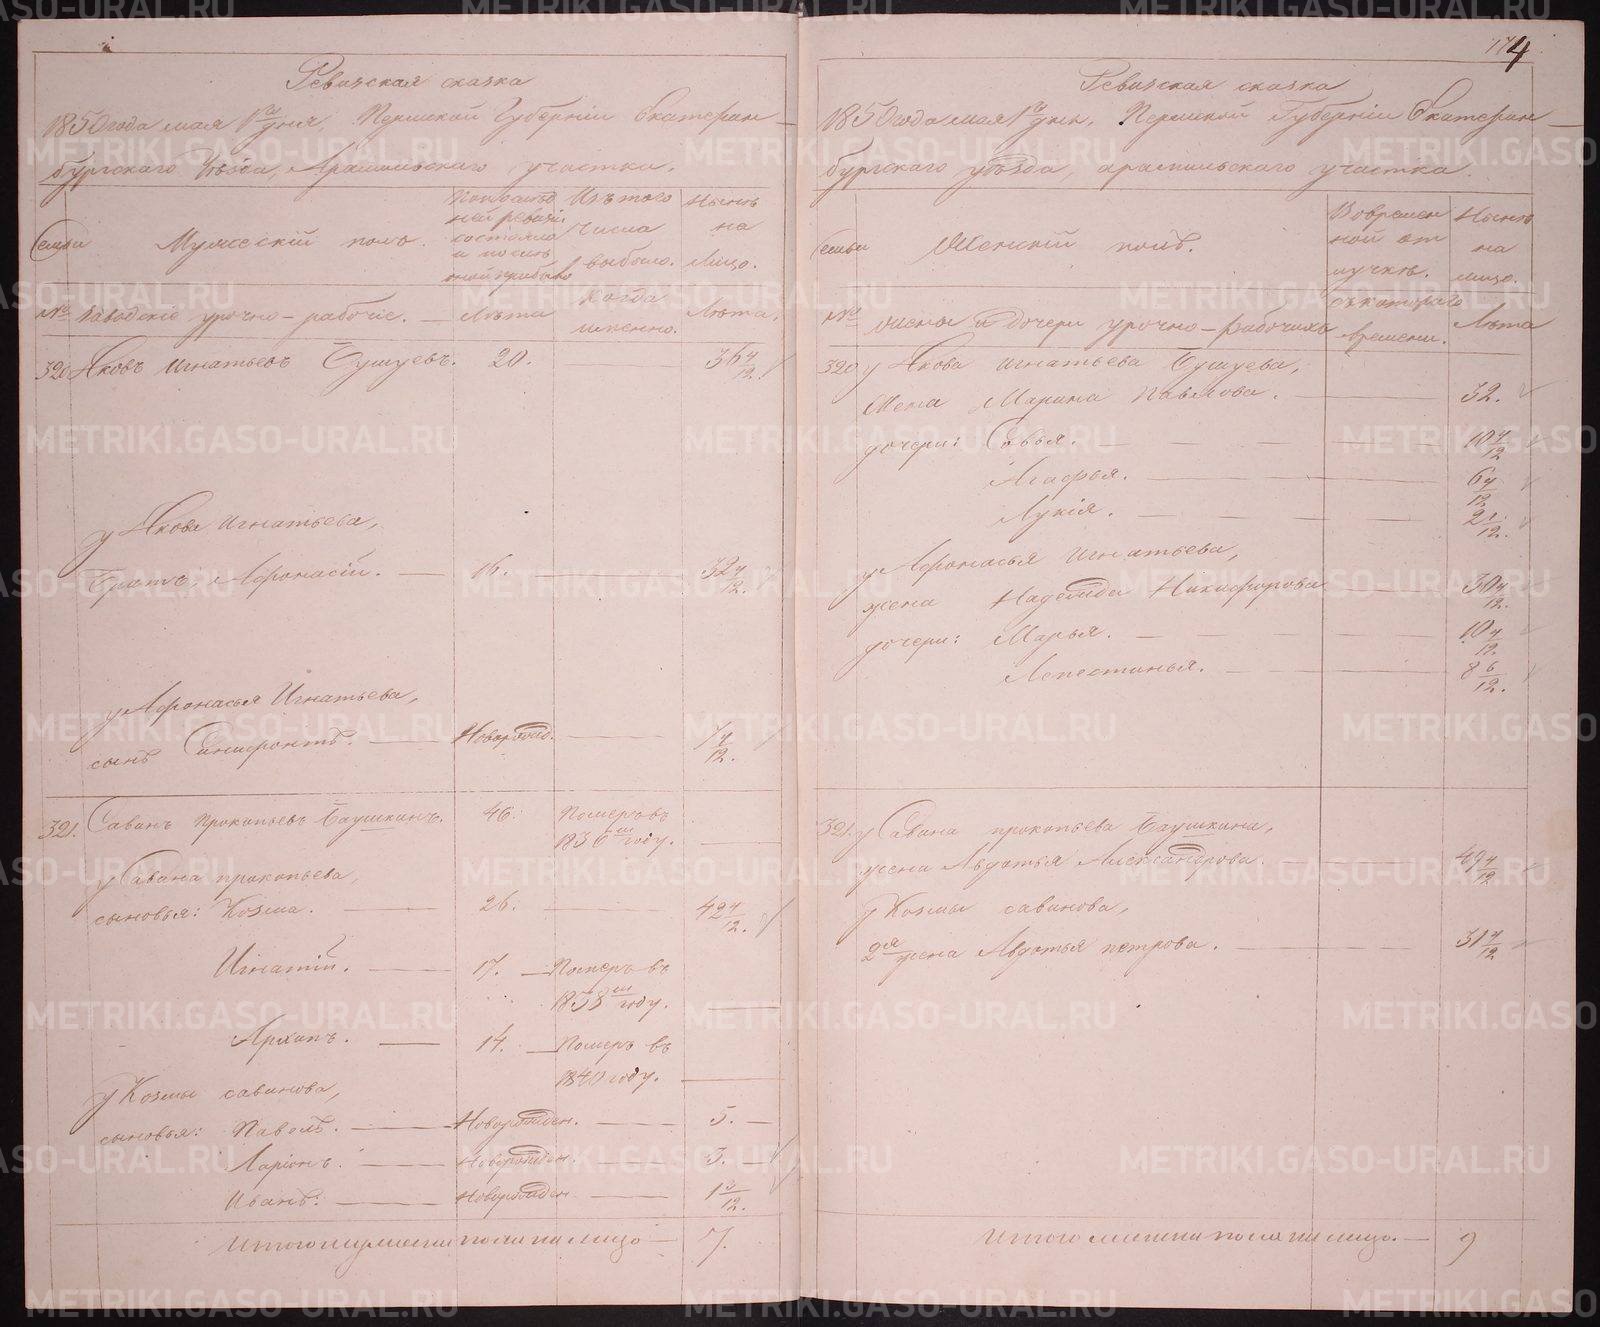 Ревизская сказка
1850 года мая 1го дня, Пермской Губернии Екатерин-
бургскаго Уезда, Арамильскаго участка.
Семьи
Мужескій полъ.
По послѣд
ней ревизіи
состояло
и после
оной прибыло
Изъ того
числа
выбыло.
Нынѣ
на
лицо.
№
Заводскіе урочно-рабочіе.
Лѣта
Когда
именно.
Лѣта.
320 Яковъ Игнатьевъ Бушуевъ. 20. — 36 4/12.
у Якова Игнатьева,
братъ, Афонасій. — 16. — 32 4/12.
у Афонасья Игнатьева,
сынъ — Новорожд. — 7 4/12.
321. Саванъ Прокопьевъ Баушкинъ. 46. Померъ въ
1836м году. —
у Савана прокопьева,
сыновья: Козма. — 26. — 42 4/12.
Игнатій. — 17. — Померъ въ
1838м году. —
Архипъ. — 14. — Померъ въ
1840 году. —
у Козмы савинова,
сыновья: Павелъ. — Новорожден. — 5. —
Ларіонъ. — Новорожден. — 3. —
Иванъ. — Новорожден — 1 3/12.
Итого мужеска пола на лицо — 7.
174
Ревизская сказка
1850 года мая 1го дня, Пермской Губерніи Екатерин-
бургскаго уѣзда, арамильскаго участка.
Семьи
Женскій полъ.
Во времен
ной от
лучкѣ.
Нынѣ
на
лицо.
№
жены и дочери урочно-рабочихъ
съ котораго
времени.
Лѣта
320 у Якова игнатьева Бушуева,
жена Марина Павлова. — 32.
дочери: Совья. — 10 4/12
Агафья. — 6 4/12
Лукія. — 2 1/12.
у Афонасья игнатьева,
жена Надежда Никифорова — 30 4/12.
дочери: Марья. — 10 4/12.
— 8 6/12.
321. у Савана прокопьева Баушкина,
жена Авдотья Александрова. — 49 4/12
у Козмы савинова,
2я жена Авдотья петрова. — 31 4/12
Итого женска пола на лицо. — 9
METRIKI.GASO-URAL.RU